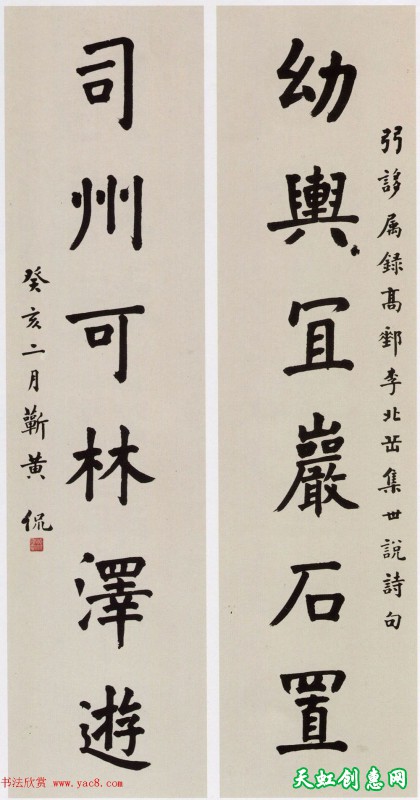 弜誃属録高郵李北岳集世說詩句
幼輿冝巖石置
司州可林澤遊
癸亥二月蘄黄侃
书法欣赏 www.yac8.com
天虹创惠网